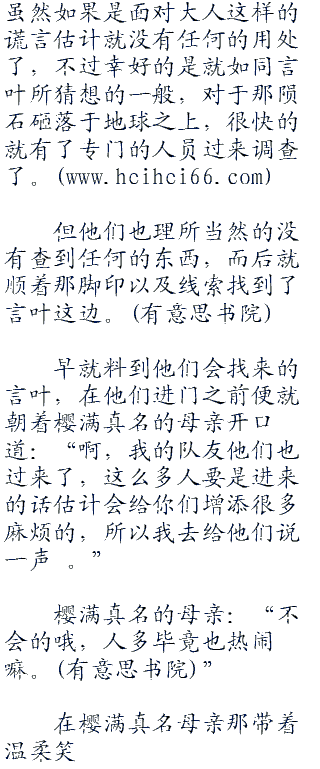 虽然如果是面对大人这样的
谎言估计就没有任何的用处
了，不过幸好的是就如同言
叶所猜想的一般，对于那陨
石砸落于地球之上，很快的
就有了专门的人员过来调查
了。(www.hcihci66.com)
但他们也理所当然的没
有查到任何的东西，而后就
顺着那脚印以及线索找到了
言叶这边。(有意思书院)
早就料到他们会找来的
言叶，在他们进门之前便就
朝着樱满真名的母亲开口
道：“啊，我的队友他们也
过来了，这么多人要是进来
的话估计会给你们增添很多
麻烦的，所以我去给他们说
一声 。”
樱满真名的母亲：“不
会的哦，人多毕竟也热闹
嘛。(有意思书院)”
在樱满真名母亲那带着
温柔笑